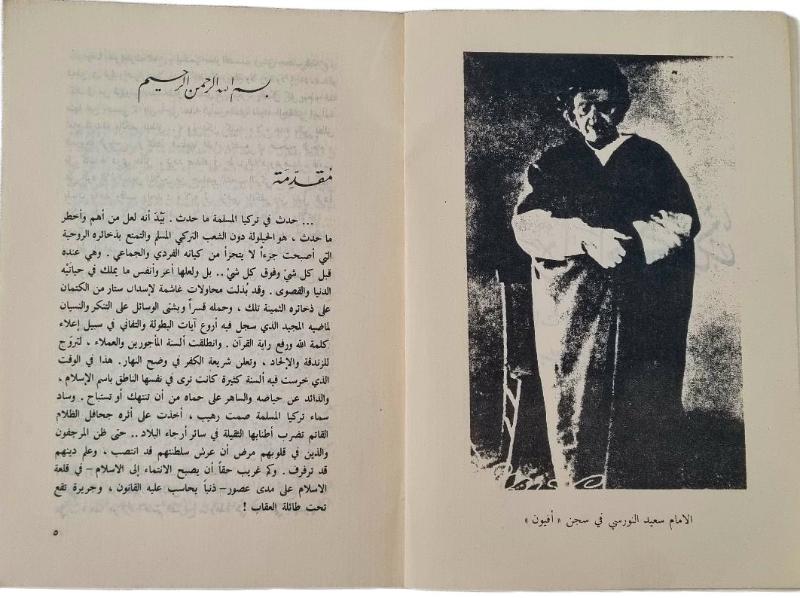 بسم الله الرحمن الرحيم
مُقدِّمَة
... حدث في تركيا المسلمة ما حدث . بَيْدَ أنه لعل من أهم وأخطر
ما حدث ، هو الحيلولة دون الشعب التركي المسلم والتمتع بذخائره الروحية
التي أصبحت جزءاً لا يتجزأ من كيانه الفردي والجماعي . وهي عنده
قبل كل شيْ وفوق كل شيْ .. بل ولعلها أعز وأنفس ما يملك في حياتَيْه
الدنيا والقصوى . وقد بُذلت محاولات غاشمة لإسداب ستار من الكتمان
على ذخائره الثمينة تلك ، وحمله قسراً وبشتى الوسائل على التنكر والنسيان
لماضيه المجيد الذي سجل فيه أروع آيات البطولة والتفاني في سبيل إعلاء
كلمة الله ورفع راية القرآن . وانطلقت ألسنة المأجورين والعملاء ، لتروّج
للزندقة والإلحاد ، وتعلن شريعة الكفر في وضح النهار . هذا في الوقت
الذي خرست فيه ألسنة كثيرة كانت ترى في نفسها الناطق باسم الإسلام ،
والذائد عن حياضه والساهر على حماه من أن تنتهك أو تستباح . وساد
سماء تركيا المسلمة صمت رهيب ، أخذت على أثره جحافل الظلام
القاتم تضرب أطنابها الثقيلة في سائر أرجاء البلاد .. حتى ظن المرجفون
والذين في قلوبهم مرض أن عرش سلطنتهم قد انتصب ، وعلم دينهم
قد ترفرف . وكم غريب حقاً أن يصبح الانتماء إلى الاسلام – في قلعة
الاسلام على مدى عصور – ذنباً يحاسب عليه القانون ، وجريرة تقع
تحت طائلة العقاب !
٥
الامام سعيد النورسي في سجن « أفيون »